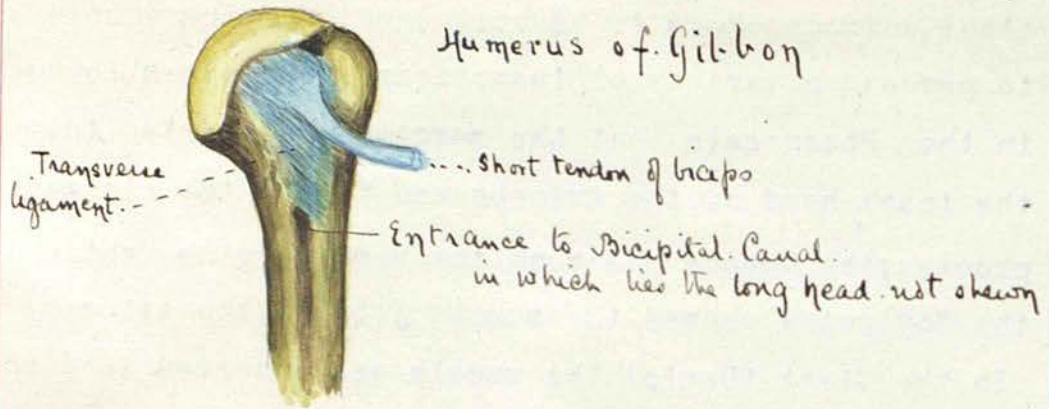 Humerus of Gibbon
Transverse
ligament.
Short tendon of biceps
Entrance to Bicipital Canal.
in which lies the long head not shewn